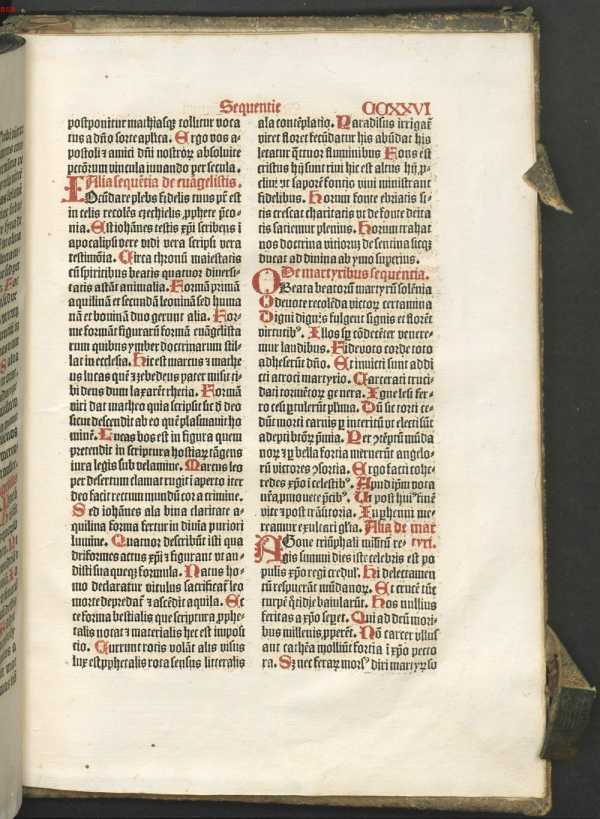 Sequentie CCXXVI
postponitur mathiasq; tollitur voca
tus a dn̄o sorte aplica. Ergo vos a-
postoli ⁊ amici dn̄i nostroꝝ absoluite
pctōrum vincula iuuando per secula.
Alia sequētia de euāgelistis.
Iocūdare plebs fidelis cuius pr̄ est
in celis recolēs ezechielis ꝓphete p̄co-
nia. Est iohānes testis ip̄i scribens ī
apocalipsi vere vidi vera scripsi vera
testimōia. Circa thronū maiestatis
cū spiritibus beatis quatuor diuersi-
tatis astāt animalia. Formā primā
aquilinā et secundā leoninā sed huma
nā et bouinā duo gerunt alia. For-
me formāt figurarū formā euāgelista
rum quibus ymber doctrinarum stil-
lat in ecclesia. Hic est marcus ⁊ mathe
us lucas quē ⁊ zebedeus pater misit ti-
bi deus dum laxaret rhetia. Formā
viri dāt matheo quia scripsit sic d̄ deo
sicut descendit ab eo quē plasmauit ho
minē. Lucas bos est in figura quem
pretendit in scriptura hostiaꝝ tāgens
iura legis sub velamine. Marcus leo
per desertum clamat rugit ī aperto iter
deo fiat rectum mundū cor a crimine.
Sed iohānes ala bina claritate a-
quilina forma fertur in diuīa puriori
lumine. Quatuor describūt isti qua
driformes actus xp̄i ⁊ figurant vt au-
disti sua queqꝫ formula. Natus ho-
mo declaratur vitulus sacrificat̄ leo
morte depredat̄ ⁊ ascēdit aquila. Et
te forma bestialis que scriptura ꝓphe-
talis notat ⁊ materialis hec est imposi
tio. Currunt rotis volāt alis visus
lux est ꝓphetalis rota sensus litteralis
ala contēplatio. Paradisus irrigat̄
viret floret fecūdatur his abūdat his
letatur q̄tuor fluminibus Fons est
cristus hij sunt riui hic est altus hij ꝓ-
cliui vt saporē fontis viui ministrant
fidelibus. Horum fonte ebriatis si-
tis crescat charitatis vt de fonte deita
tis satiemur plenius. Horum trahat
nos doctrina vitioruꝫ de sentina sicqꝫ
ducat ad diuina ab ymo superius.
De martyribus sequencia.
O Beata beatorū martyrū solēnia
O deuote recolēda victoꝝ certamina
Digni dignꝭ fulgent signis et florēt
virtutibꝰ. Illos sꝑ cōdecēter venere-
mur laudibus. Fide voto corde toto
adheserūt dn̄o. Et inuicti sunt addi
cti atroci martyrio. Carcerati truci-
dati tormētoꝝ genera. Igne lesi fer-
ro cesi ꝓtulerūt plima. Dū sic torti ce-
dūt morti carnis ꝑ interitū vt electi sūt
adepti btōꝝ p̄mia. Per ꝯtēptū mūda
noꝝ ⁊ ꝑ bella fortia meruerūt angelo-
rū victores ꝯsortia. Ergo facti cohe-
redes xp̄o ī celestibꝰ. Apud ip̄m vota
nr̄a ꝓmouete p̄cibꝰ. Ut post huiꝰ finē
vite ⁊ post trāsitoria. In ꝑhenni me-
reamur exultari gl̄ia. Alia de mar
tyri.
Agone triūphali militū re-
gis summi dies iste celebris est po
pulis xp̄o regi credul'. Hi delectamen
tū respuerūt mūdanoꝝ. Et crucē tūc
turpē q̄tidie baiularūt. Hos nullius
feritas a xp̄o seꝑet. Qui ad deū mori-
bus millenis ꝓperēt. Nō carcer vllus
aut cathēa molliūt fortia ī xp̄o pecto
ra. Sꝫ nec feraꝝ morsꝰ diri martyꝝ so